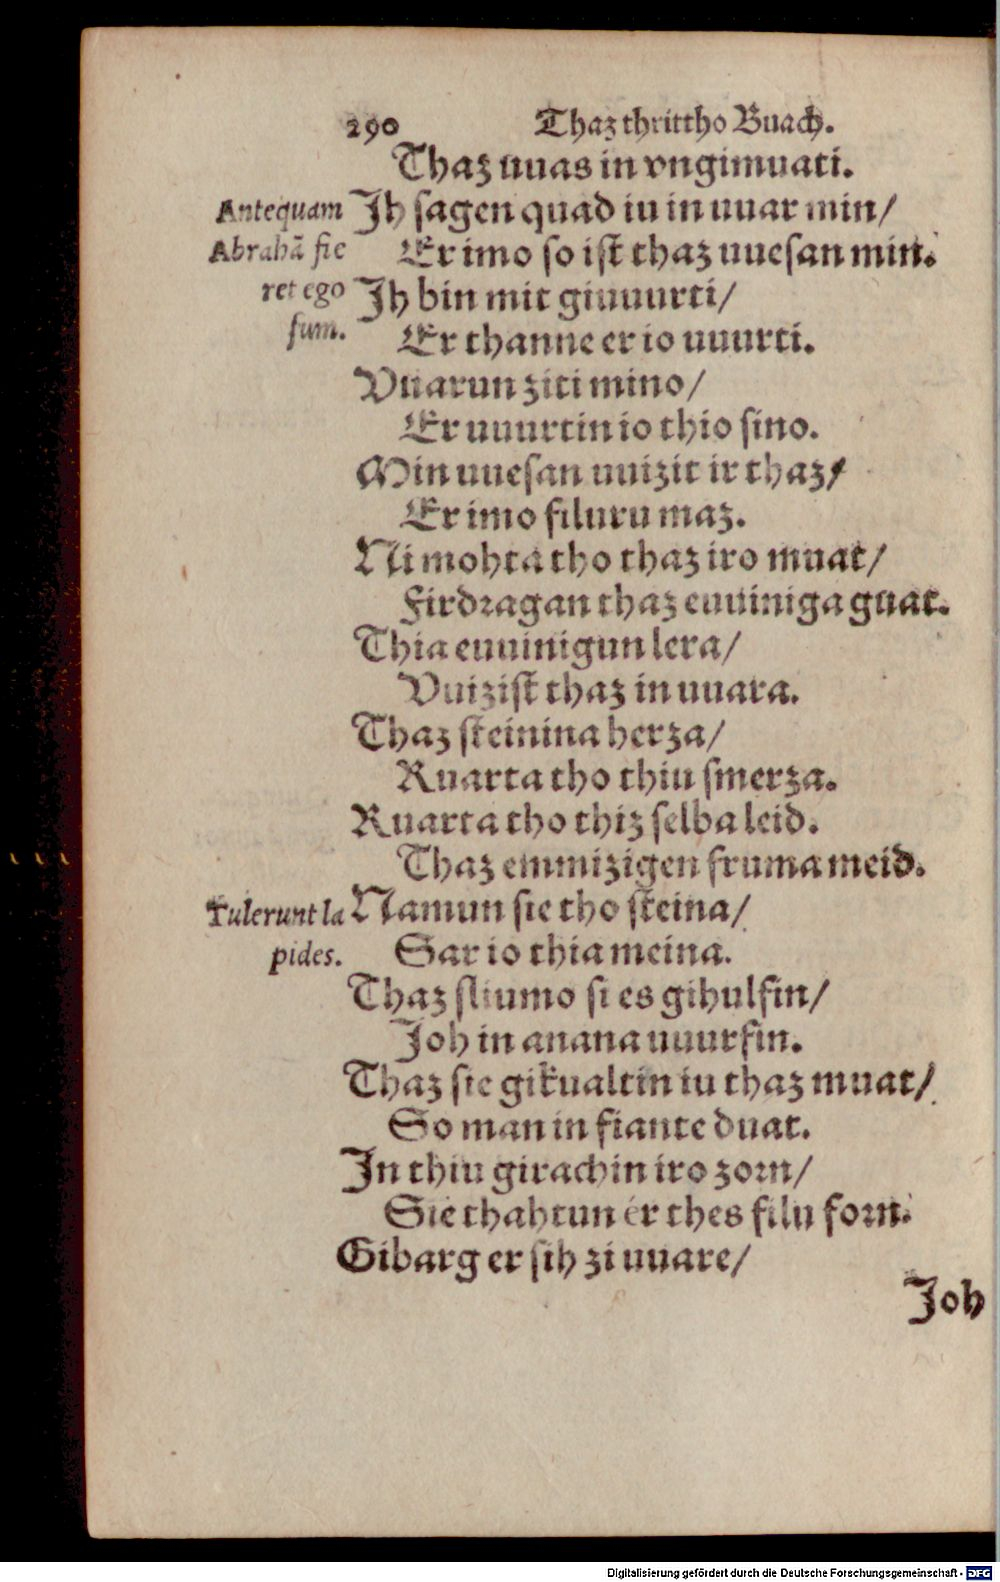 290 Thaz thrittho Buach.
Thaz uuas in vngimuati.
Antequam
Abrahā fie
ret ego
sum.
Jh sagen quad iu in uuar min/
Er imo so ist thaz uuesan min.
Jh bin mit giuuurti/
Er thanne er io uuurti.
Vuarun ziti mino/
Er uuurtin io thio sino.
Min uuesan uuizit ir thaz/
Er imo filuru maz.
Ni mohta tho thaz iro muat/
Firdragan thaz euuiniga guat.
Thia euuinigun lera/
Vuizist thaz in uuara.
Thaz steinina herza/
Ruarta tho thiu smerza.
Ruarta tho thiz selba leid.
Thaz emmizigen fruma meid.
Tulerunt la
pides.
Namun sie tho steina/
Sar io thia meina.
Thaz sliumo si es gihulfin/
Joh in anana uuurfin.
Thaz sie gikualtin iu thaz muat/
So man in fiante duat.
In thiu girachin iro zorn/
Sie thahtun ér thes filu forn.
Gibarg er sih zi uuare/
Joh
Digitalisierung gefördert durch die Deutsche Forschungsgemeinschaft - DFG